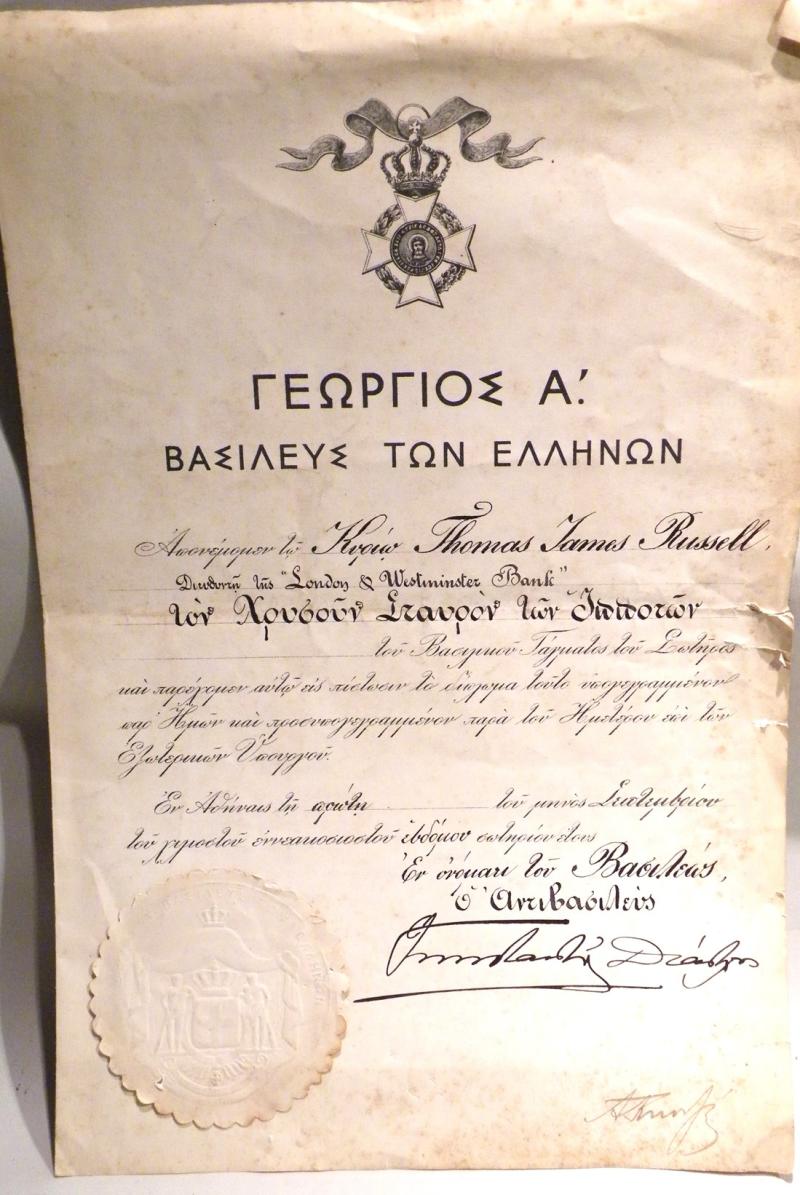 ΓΕΩΡΓΙΟΣ Α΄.
ΒΑΣΙΛΕΥΣ ΤΩΝ ΕΛΛΗΝΩΝ
Ἀπονέμομεν τῷ Κυρίῳ Thomas James Russell,
Διευθυντῇ τῆς "London & Westminster Bank"
τὸν Χρυσοῦν Σταυρὸν τῶν Ἱπποτῶν
τοῦ Βασιλικοῦ Τάγματος τοῦ Σωτῆρος
καὶ παρέχομεν αὐτῷ εἰς πίστωσιν τὸ δίπλωμα τοῦτο ὑπογεγραμμένον
παρ' Ἡμῶν καὶ προσυπογεγραμμένον παρὰ τοῦ Ἡμετέρου ἐπὶ τῶν
Ἐξωτερικῶν Ὑπουργοῦ.
Ἐν Ἀθήναις τῇ πρώτῃ τοῦ μηνὸς Σεπτεμβρίου
τοῦ χιλιοστοῦ ἐννεακοσιοστοῦ ἑβδόμου σωτηρίου ἔτους
Ἐν ὀνόματι τοῦ Βασιλέως,
Ὁ Ἀντιβασιλεὺς
Κωνσταντῖνος Διάδοχος